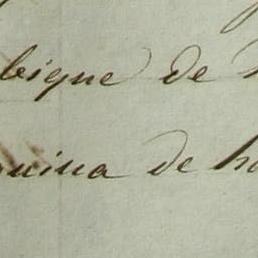 bique de
quina de